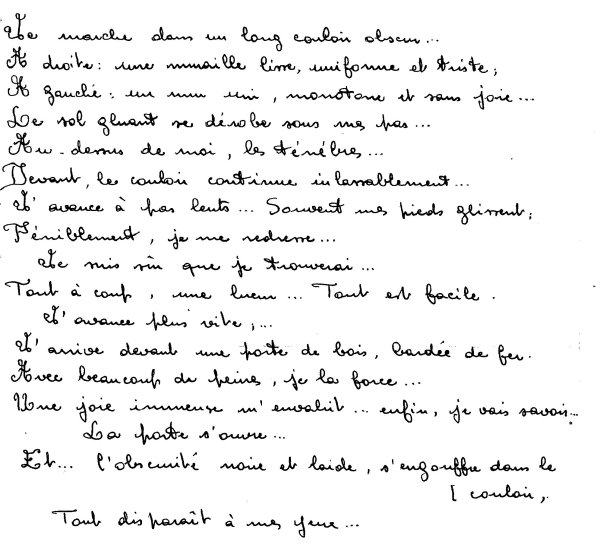 Je marche dans un long couloir obscur...
A droite : une muraille lisse, uniforme et triste ;
A gauche : un mur uni, monotone et sans joie...
Le sol gluant se dérobe sous mes pas...
Au-dessus de moi, les ténèbres...
Devant, le couloir continue inlassablement...
J'avance à pas lents... Souvent mes pieds glissent ;
Péniblement, je me redresse...
Je suis sûr que je trouverai...
Tout à coup, une lueur... Tout est facile.
J'avance plus vite ;...
J'arrive devant une porte de bois, bardée de fer.
Avec beaucoup de peine, je la force...
Une joie immense m'envahit... enfin, je vais savoir...
La porte s'ouvre...
Et... l'obscurité noire et laide, s'engouffre dans le
[ couloir,
Tout disparaît à mes yeux...